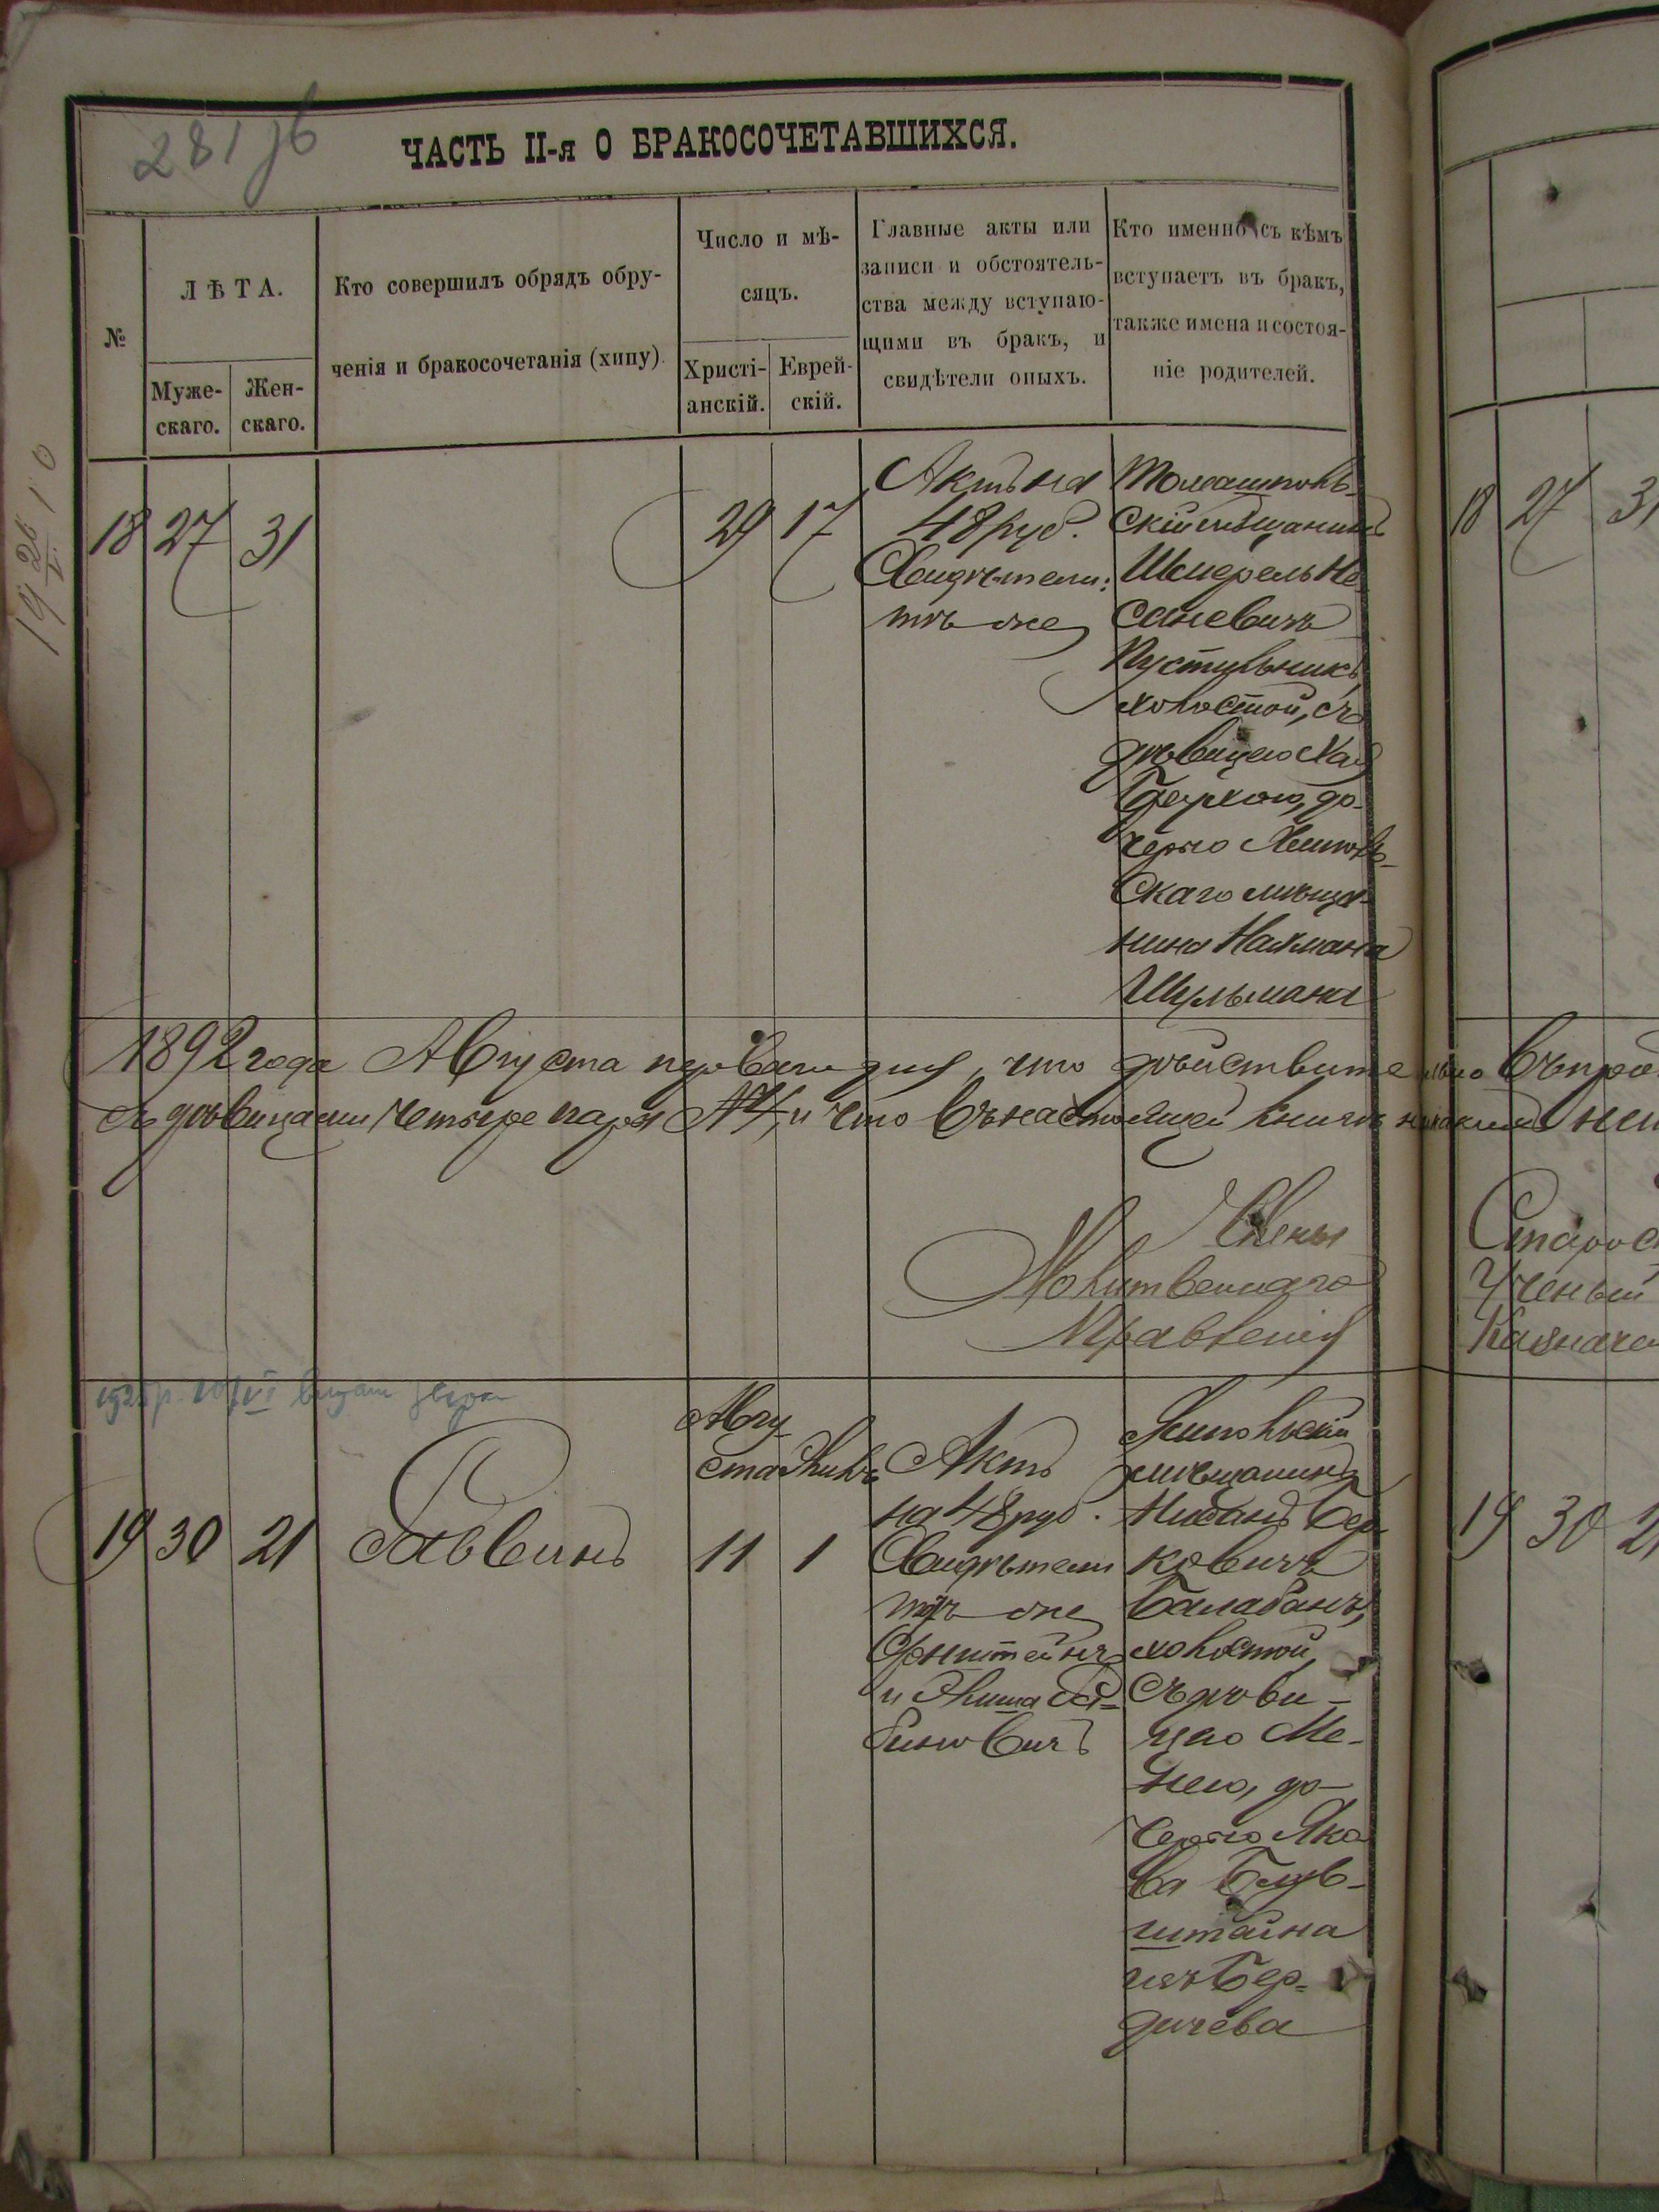 281 об
ЧАСТЬ II-я О БРАКОСОЧЕТАВШИХСЯ.
№
ЛѢТА.
Муже-
скаго.
Жен-
скаго.
Кто совершилъ обрядъ обру-
ченія и бракосочетанія (хипу)
Число и мѣ-
сяцъ.
Христі-
анскій.
Еврей-
скій.
Главные акты или
записи и обстоятель-
ства между вступаю-
щими въ бракъ, и
свидѣтели оныхъ.
Кто именно съ кѣмъ
вступаетъ въ бракъ,
также имена и состоя-
ніе родителей.
18 27 31
29 17
Актъ на
48 руб.
Свидѣтели:
тѣ же
Томашполь-
скій мѣщанинъ
Шмерель Не
сановичъ
Пустульникъ,
холостой, съ
дѣвицею Хая
Беркою, до-
черью Ямполь-
скаго мѣща-
нина Нахмана
Шульмана
1892 года Августа перваго дня, что дѣйствительно въ
съ дѣвицами четыре пары №4, и что въ настоящей книгѣ никакихъ
Члены
Молитвеннаго
Правленія
19 30 21
Раввинъ
Авгу-
ста
11
1
Актъ
на 48 руб.
Свидѣтели
тѣ же
и
биновичъ
Ямпольскій
мѣщанинъ
Бер-
ковичъ
Балабанъ,
холостой,
съ дѣви-
цею Ме-
нею, до-
черью Яко
ва Блув-
штайна
изъ Бер-
дичева
18 27 31
Старос
Ученый
Казначе
19 30 21